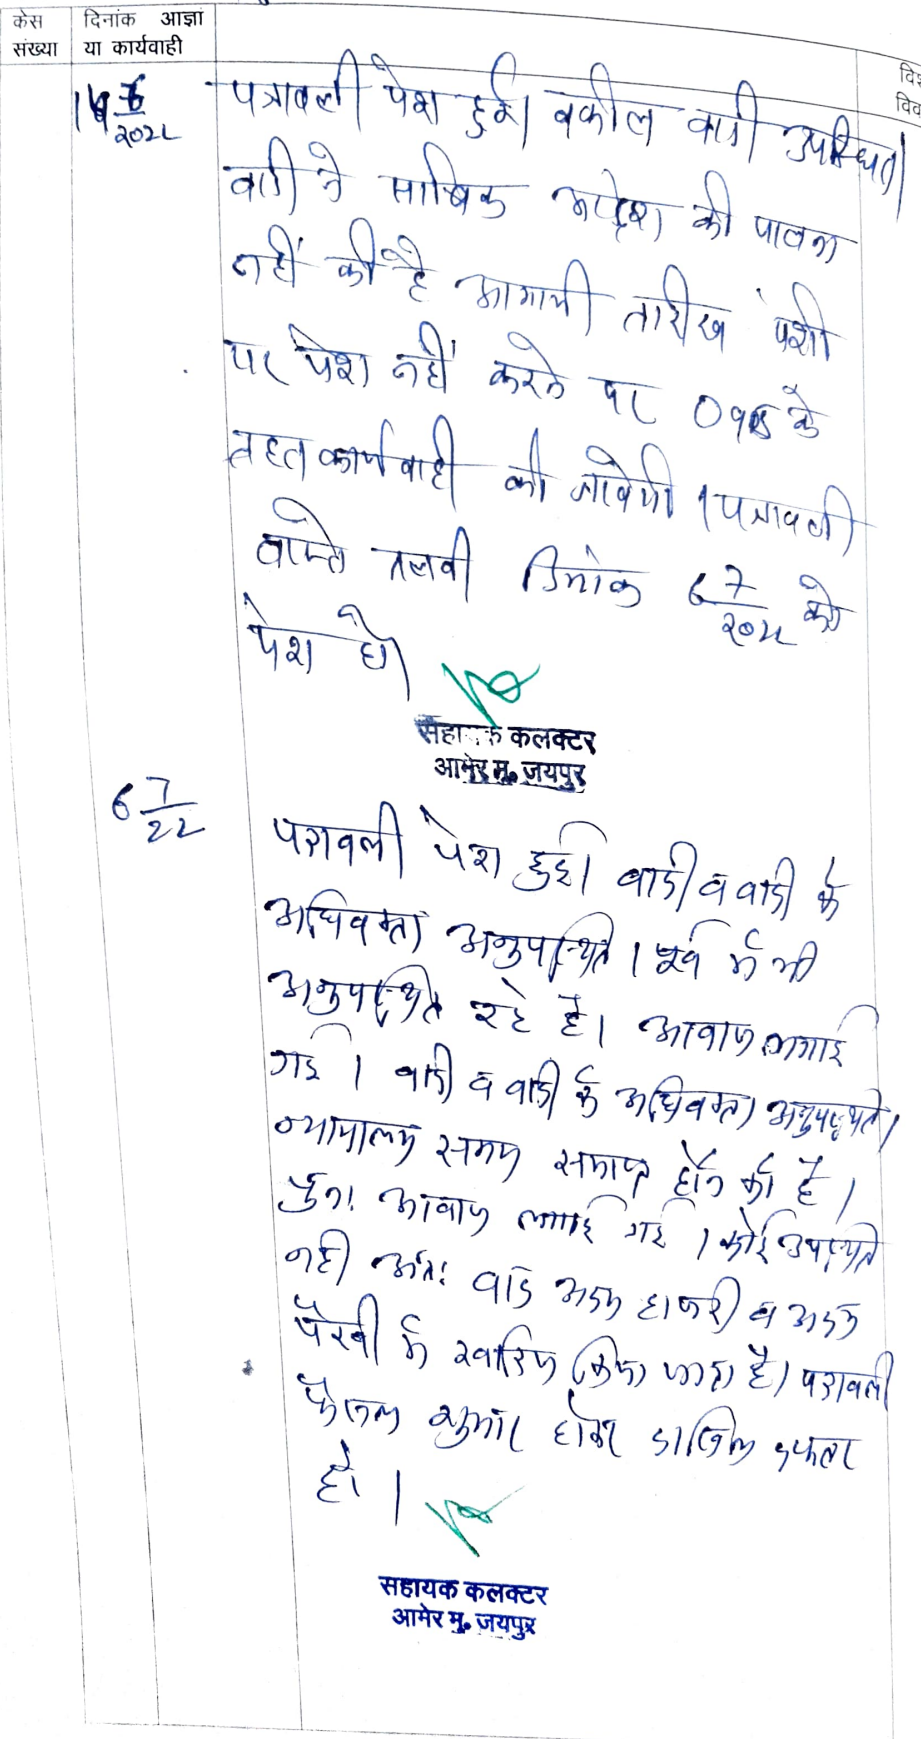 केस दिनांक आज्ञा
संख्या या कार्यवाही
पत्रावली पेश हुई। वकील वादी उपस्थित।
वादी ने साबिक आदेश की पालना
नहीं की है आगामी तारीख पेशी
पर पेश नहीं करने पर के
तहत कार्यवाही की जावेगी। पत्रावली
वास्ते तलबी दिनांक 6 7/2022 को
पेश हो।
सहायक कलक्टर
आमेर मु. जयपुर
6 7/22
पत्रावली पेश हुई। वादी व वादी के
अधिवक्ता अनुपस्थित। पूर्व में भी
अनुपस्थित रहे है। आवाज लगाई
गई। वादी व वादी के अधिवक्ता अनुपस्थित।
न्यायालय समय समाप्त होने को है।
पुनः आवाज लगाई गई। कोई उपस्थित
नही अतः वाद अदम हाजरी व अदम
पैरवी में खारिज किया जाता है। पत्रावली
फैसल शुमार होकर दाखिल दफ्तर
हो।
सहायक कलक्टर
आमेर मु. जयपुर